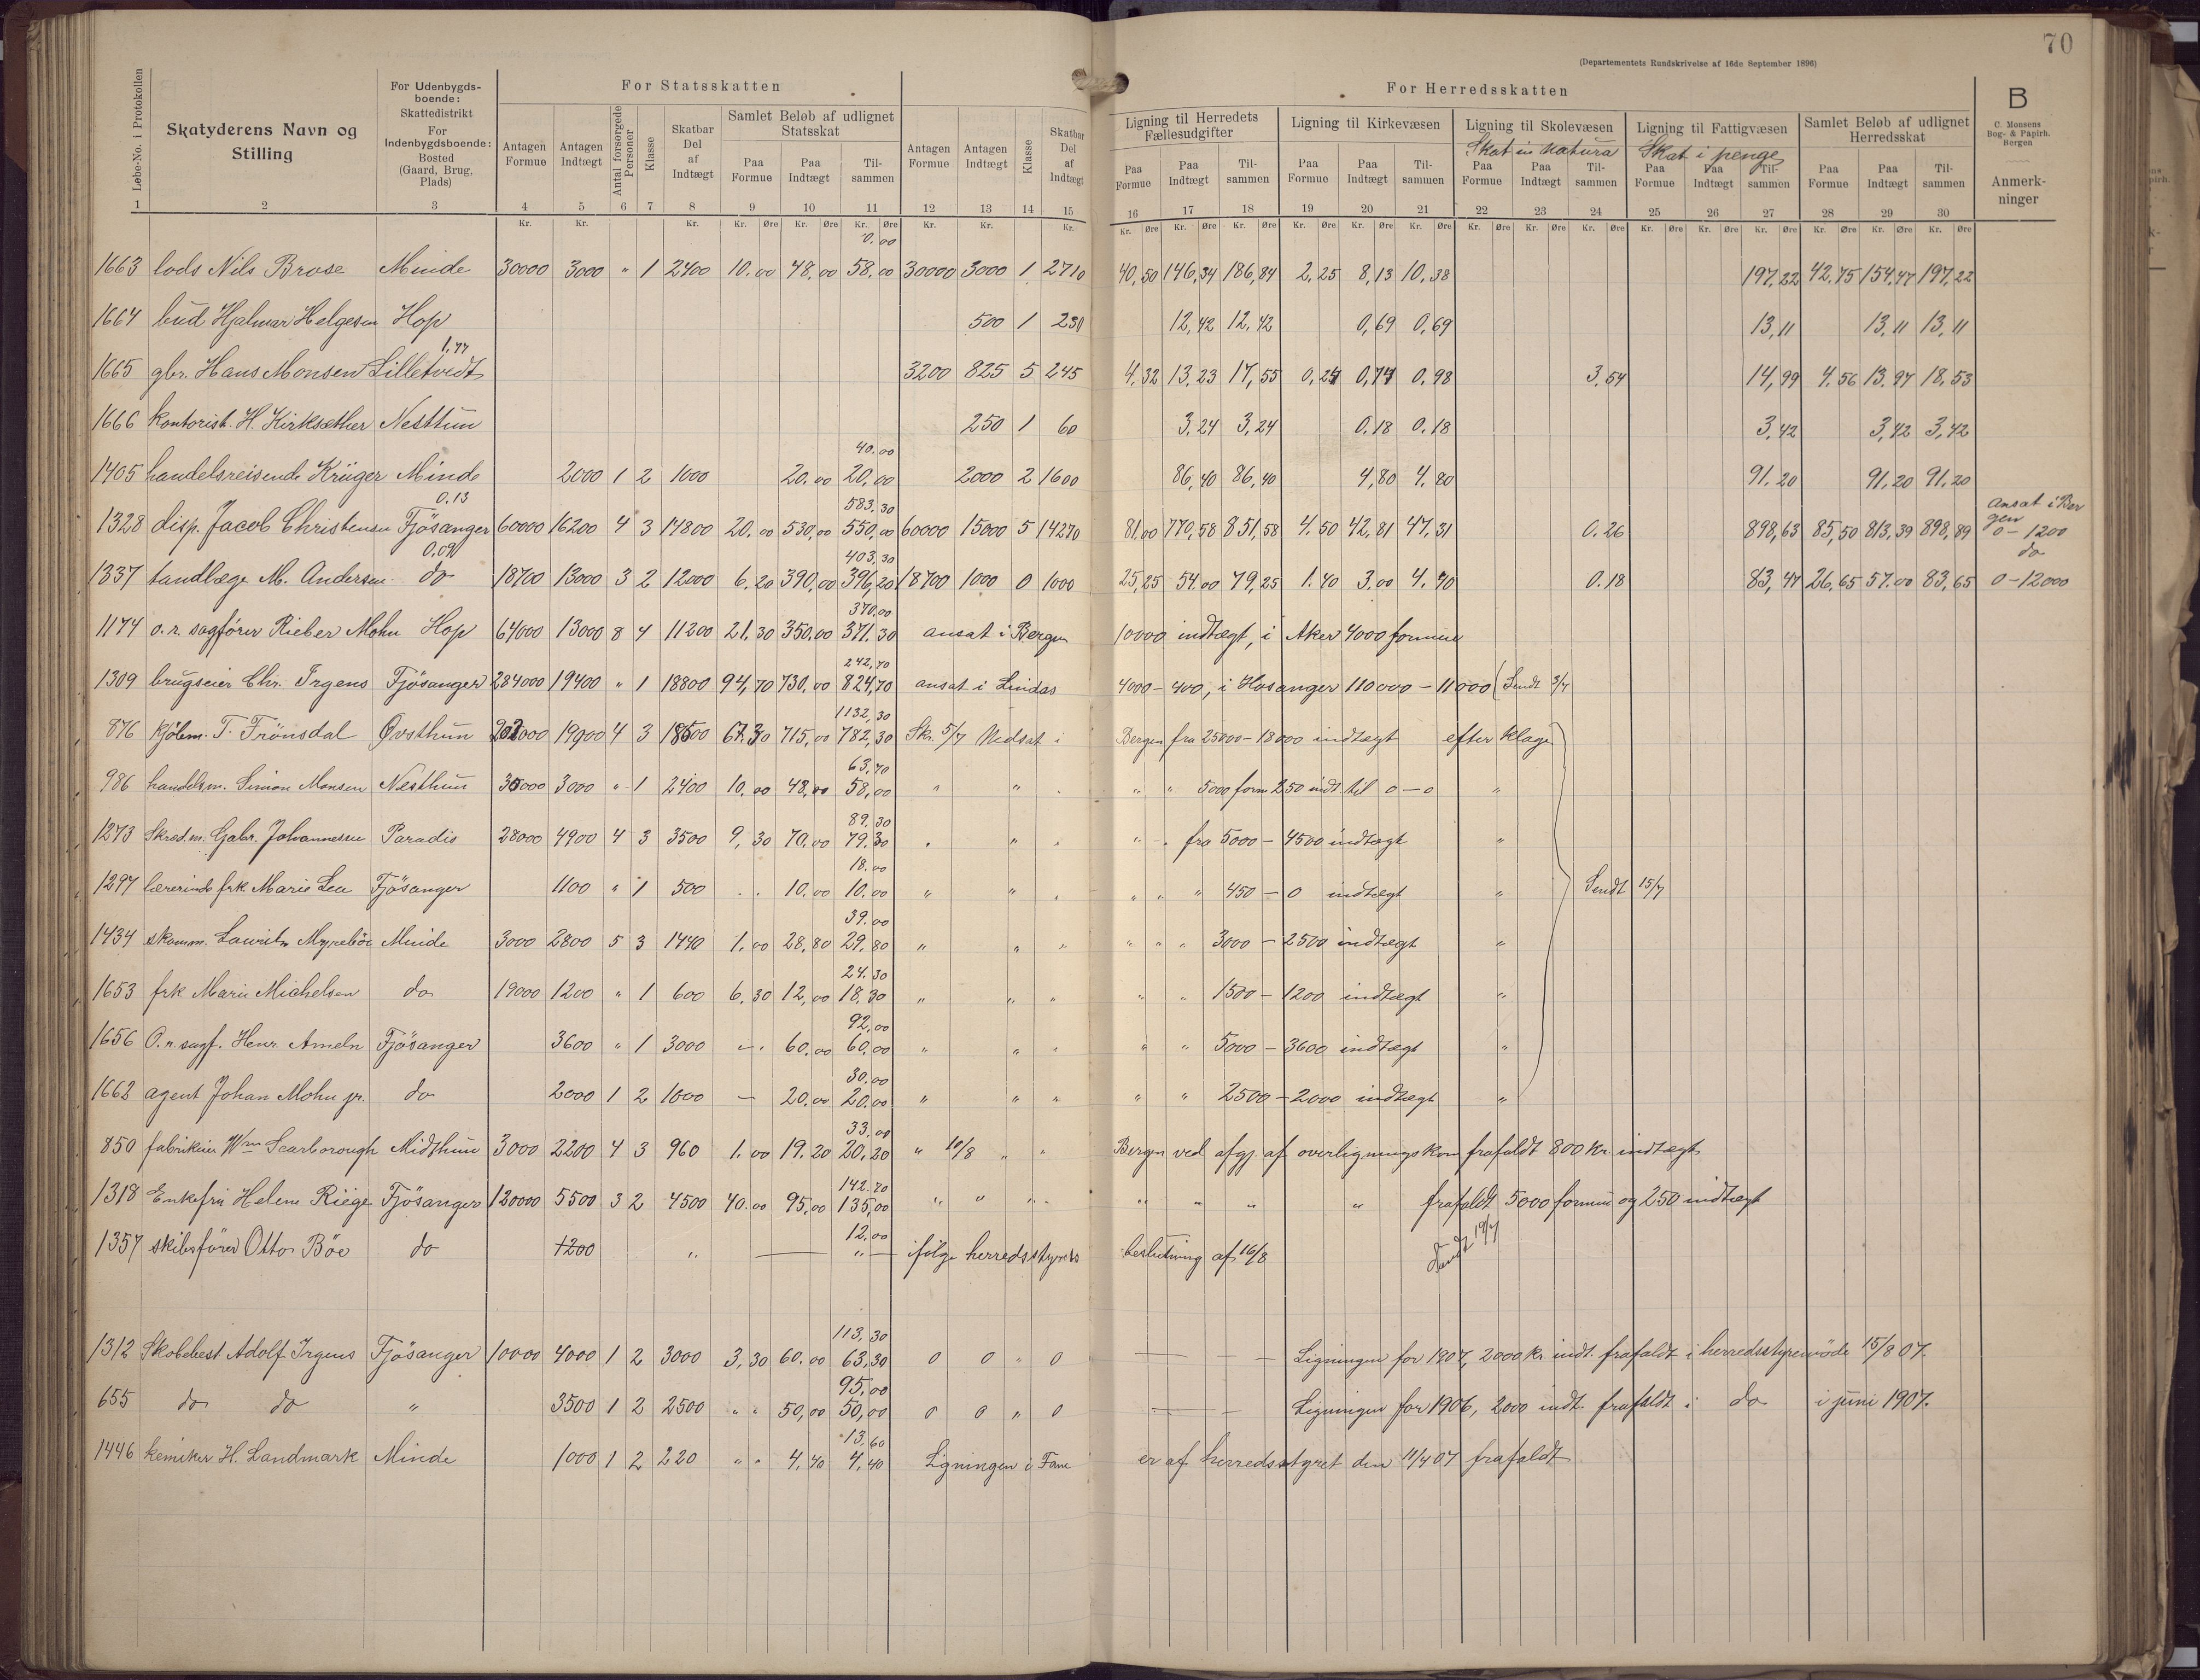 70
(Departementets Rundskrivelse af 16de September 1896)
For Statsskatten
For Herredsskatten
B
C. Monsens Bog- & Papirh. Bergen
Løbe-No. i Protokollen
Skatyderens Navn og Stilling
For Udenbygdsboende: Skattedistrikt For Indenbygdsboende: Bosted (Gaard, Brug, Plads)
Antagen Formue
Antagen Indtægt
Antal forsørgede Personer
Klasse
Skatbar Del af Indtægt
Samlet Beløb af udlignet Statsskat
Paa Formue Paa Indtægt Tilsammen
Antagen Formue
Antagen Indtægt
Klasse
Skatbar Del af Indtægt
Ligning til Herredets Fællesudgifter
Paa Formue Paa Indtægt Tilsammen
Ligning til Kirkevæsen
Paa Formue Paa Indtægt Tilsammen
Ligning til Skolevæsen
Skat in natura
Paa Formue Paa Indtægt Tilsammen
Ligning til Fattigvæsen
Skat i penge
Paa Formue Paa Indtægt Tilsammen
Samlet Beløb af udlignet Herredsskat
Paa Formue Paa Indtægt Tilsammen
Anmerkninger
1 2 3 4 5 6 7 8 9 10 11 12 13 14 15 16 17 18 19 20 21 22 23 24 25 26 27 28 29 30
Kr. Kr. Kr. Kr. Øre Kr. Øre Kr. Øre Kr. Kr. Kr. Kr. Øre Kr. Øre Kr. Øre Kr. Øre Kr. Øre Kr. Øre Kr. Øre Kr. Øre Kr. Øre Kr. Øre Kr. Øre Kr. Øre Kr. Øre Kr. Øre Kr. Øre
0.00
1663 lods Nils Brose Minde 30000 3000 " 1 2400 10.00 48.00 58.00 30000 3000 1 2710 40,50 146,34 186,84 2,25 8,13 10,38 197,22 42,75 154,47 197,22
1664 bud Hjalmar Helgesen Hop 500 1 230 12,42 12,42 0,69 0,69 13,11 13,11 13,11
1,77
1665 gbr. Hans Monsen Lilletvedt 3200 825 5 245 4,32 13,23 17,55 0,24 0,74 0,98 3,54 14,99 4,56 13,97 18,53
1666 kontorist. H. Kirksæther Nesttun 250 1 60 3,24 3,24 0.18 0.18 3,42 3,42 3,42
40.00
1405 handelsreisende Krüger Minde 2000 1 2 1000 20.00 20,00 2000 2 1600 86,40 86,40 4,80 4,80 91,20 91,20 91,20
0.13 583.30 Ansat i Bergen
1328 disp. Jacob Christensen Fjösanger 60000 16200 4 3 14800 20.00 530,00 550,00 60000 15000 5 14270 81,00 770,58 851,58 4.50 42,81 47,31 0.26 898,63 85,50 813,39 898,89 0-1200
0.09 403,30 do
1337 tandlæge M. Andersen do 18700 13000 3 2 12000 6.20 390,00 396,20 18700 1000 0 1000 25,25 54.00 79,25 1.40 3,00 4,40 0.18 83,47 26,65 57.00 83,65 0-12000
370.00
1174 o.r. sagfører Rieber Mohn Hop 64000 13000 8 4 11200 21.30 350.00 371.30 ansat i Bergen 10000 indtægt, i Aker 4000 formue
242,70
1309 brugseier Chr. Irgens Fjösanger 284000 19400 " 1 18800 94,70 730,00 824,70 ansat i Lindås 4000-400, i Hosanger 110000-11000 (Sendt 3/7
1132,30
876 Kjöbm. T. Frönsdal Øvsthun 202000 19900 4 3 18600 67.30 715,00 782,30 Skr. 5/7 Nedsat i Bergen fra 25000-18000 indtægt efter klage
63,70
986 handelsm. Simon Monsen Nesthun 30000 3000 " 1 2400 10,00 48,00 58,00 " " " " " 5000 form 250 indt. til 0-0 "
89.30
1273 Skred.m. Gabr. Johannessen Paradis 28000 4900 4 3 3500 9,30 70,00 79,30 " " " " " fra 5000-4500 indtægt "
18.00
1297 lærerinde frk Marie Lea Fjösanger 1100 " 1 500 " " 10.00 10.00 " " " " " " 450-0 indtægt " Sendt 15/7
39.00
1434 skomm. Lauritz Myrebøe Minde 3000 2800 5 3 1440 1.00 28,80 29,80 " " " " " " 3000-2500 indtægt "
24.30
1653 frk Marie Michelsen do 19000 1200 " 1 600 6,30 12,00 18,30 " " " " " 1500-1200 indtægt "
92,00
1656 O.r. sagf. Henr. Ameln Fjösanger 3600 " 1 3000 -. 60.00 60,00 " " " " " 5000-3600 indtægt "
30.00
1662 agent Johan Mohn jr. do 2000 1 2 1000 - 20.00 20.00 " " " " " 2500-2000 indtægt "
33,00
850 fabrikeier Wm Scarborough Midthun 3000 2200 4 3 960 1.00 19.20 20,20 " 10/8 " " Bergen ved afgj. af overligningskom frafaldt 800 Kr. indtægt
142.70
1318 Enkefru Helene Riege Fjösanger 120000 5500 3 2 4500 40.00 95,00 135,00 " " " " " " " " frafaldt 5000 formue og 250 indtægt
12.00
1357 skibsfører Otto Böe do +200 " — " — ifølge herredsstyrets beslutning af 16/8 Sendt 19/7
113,30
1312 Skolebest Adolf Irgens Fjösanger 10000 4000 1 2 3000 3,30 60.00 63,30 0 0 " 0 — — — Ligningen for 1907, 2000 Kr. indt. frafaldt i herredsstyremöde 15/8 07.
95,00
655 do do " 3500 1 2 2500 " " 50,00 50,00 0 0 " 0 — — Ligningen for 1906, 2000 indt. frafaldt i do i juni 1907.
13,60
1446 kemiker H. Landmark Minde 1000 1 2 220 " " 4,40 4,40 Ligningen i Fane er af herredsstyret den 11/4 07 frafaldt